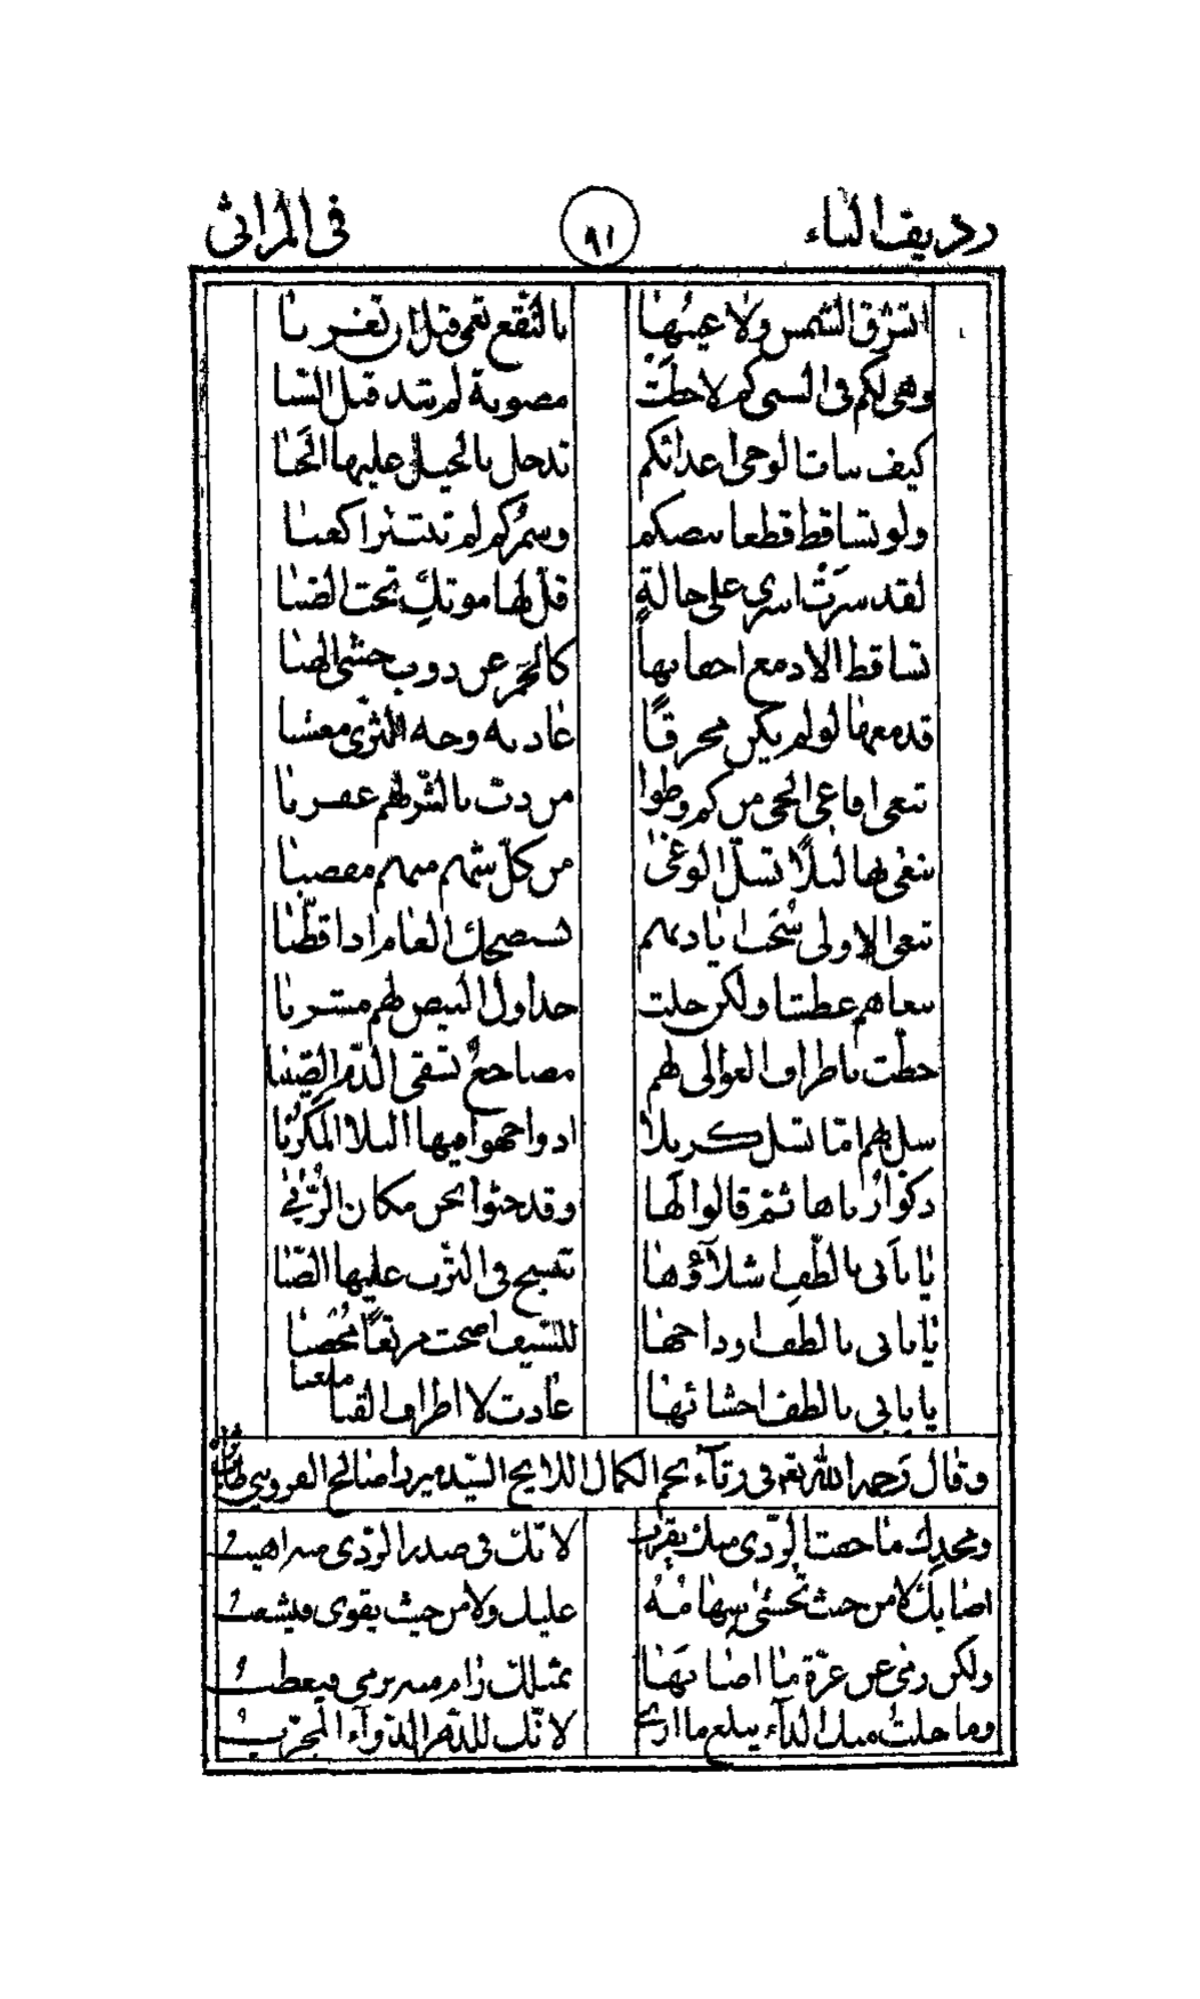 رديف الباء ٩١ في المراثي
اتشرق الشمس ولا عينها بالنقع تعمى قبل ان تغربا
وهي لكم في السبي كم لاحظت مصونة لم تبد قبل السبا
كيف بنات الوحي اعدائكم تدخل بالخيل عليها الخبا
ولو تساقط قطعا بيضكم وسمركم لم تنتثر اكعبا
لقد سرت اسرى على حالة قل لها موتك تحت الضبا
تساقط الادمع اجفانها كالجمر عن ذوب حشى الهبا
فدمعها لو لم يكن محرقا عاد به وجه الثرى معشبا
تنعى افاعي الحي من كم وطوا من دب بالشر لهم عقربا
تنعى بها ليلا تسل الوغى من كل شهم منهم مقضبا
تنعى الاولى سحب اياديهم تستضحك العام اذا قطبا
تنعاهم عطشا ولكن حلت جداول البيض لهم مشربا
خطت باطراف العوالي لهم مضاجع تسقى الدم الصيبا
سل بهم اما تسل كربلا اذ واجهوا فيها البلا المكربا
دكوا رباها ثم قالوا لها وقد جثوا نحن مكان الربى
يا بابي بالطف اشلاؤها تنسج في الترب عليها الصبا
يا بابي بالطف اوداجها للسيف اضحت مرتعا مخصبا
يا بابي بالطف احشائها عادت لاطراف القنا ملعبا
وقال رحمه الله تعالى في رثاء نجم الكمال اللايح السيد ميرزا صالح القزويني طاب ثراه
ومجدك ما خفت الردى منك يقرب لانك في صدر الردى منه اهيب
اصابك لا من حيث تخشى سهامه عليك ولا من حيث يقوى فيشعب
ولكن رمى عن غرة ما اصابها بمثلك رام منه يرمي فيعطب
وما خلت منك الداء يبلغ ما ارى لانك للدهر الدواء المجرب